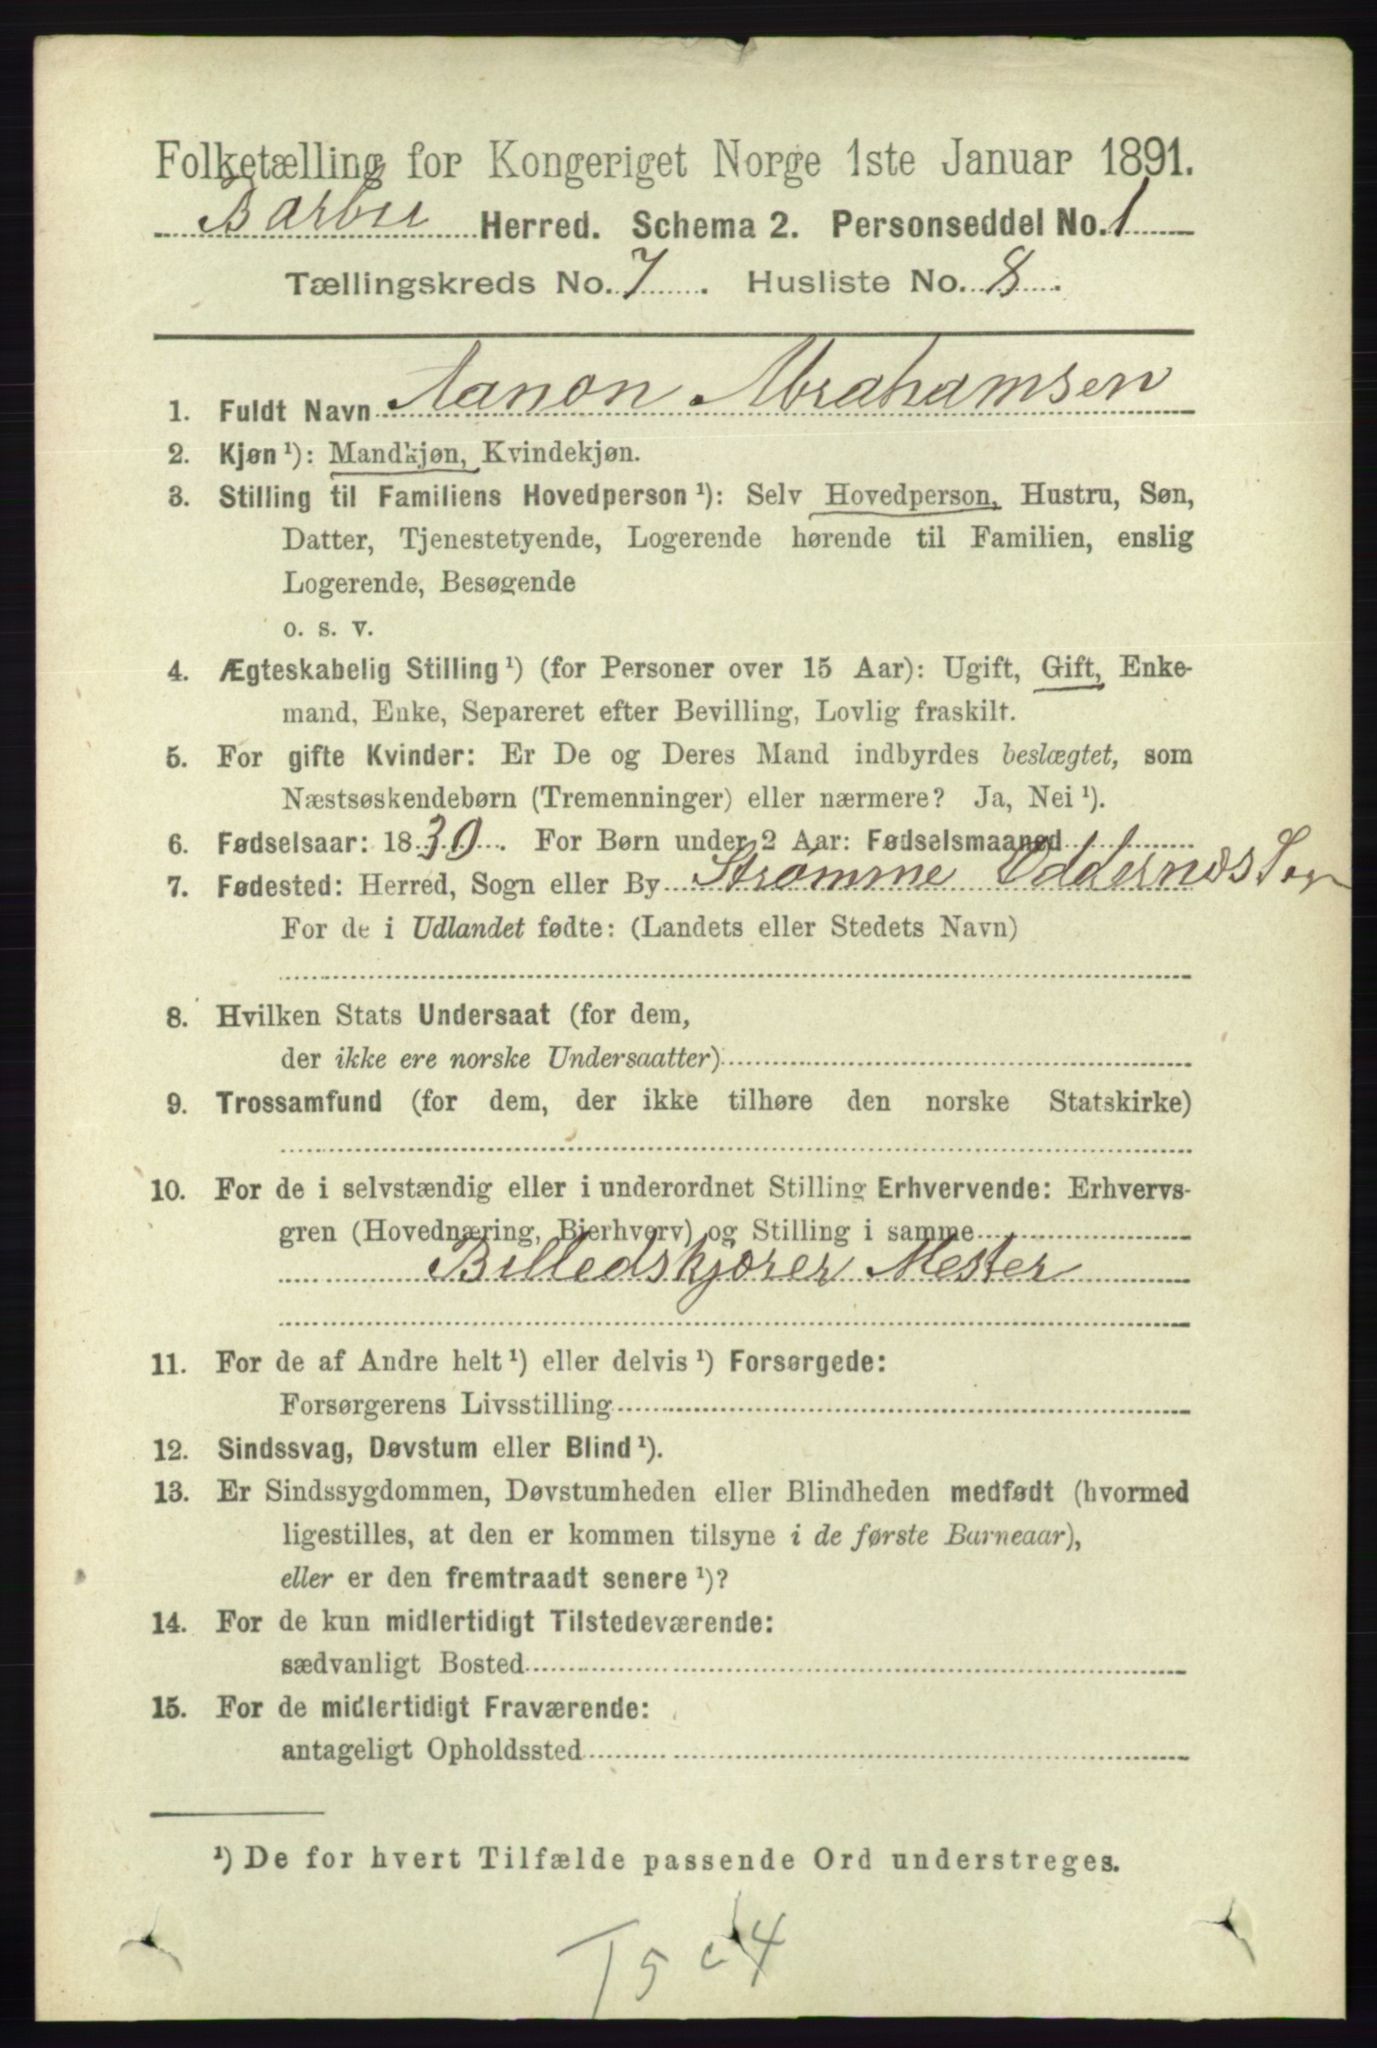 Folketælling for Kongeriget Norge 1ste Januar 1891.
Barbu Herred. Schema 2. Personseddel No. 1
Tællingskreds No. 7. Husliste No. 8.
1. Fuldt Navn Aanon Abrahamsen
2. Kjøn ¹): Mandkjøn, Kvindekjøn.
3. Stilling til Familiens Hovedperson ¹): Selv Hovedperson, Hustru, Søn,
Datter, Tjenestetyende, Logerende hørende til Familien, enslig
Logerende, Besøgende
o. s. v.
4. Ægteskabelig Stilling ¹) (for Personer over 15 Aar): Ugift, Gift, Enke-
mand, Enke, Separeret efter Bevilling, Lovlig fraskilt.
5. For gifte Kvinder: Er De og Deres Mand indbyrdes beslægtet, som
Næstsøskendebørn (Tremenninger) eller nærmere? Ja, Nei ¹).
6. Fødselsaar: 1830. For Børn under 2 Aar: Fødselsmaaned
7. Fødested: Herred, Sogn eller By Strømme Oddernæs Sogn
For de i Udlandet fødte: (Landets eller Stedets Navn)
8. Hvilken Stats Undersaat (for dem,
der ikke ere norske Undersaatter)
9. Trossamfund (for dem, der ikke tilhøre den norske Statskirke)
10. For de i selvstændig eller i underordnet Stilling Erhvervende: Erhvervs-
gren (Hovednæring, Bierhverv) og Stilling i samme
Billedskjører Mester
11. For de af Andre helt ¹) eller delvis ¹) Forsørgede:
Forsørgerens Livsstilling
12. Sindssvag, Døvstum eller Blind ¹).
13. Er Sindssygdommen, Døvstumheden eller Blindheden medfødt (hvormed
ligestilles, at den er kommen tilsyne i de første Barneaar),
eller er den fremtraadt senere ¹)?
14. For de kun midlertidigt Tilstedeværende:
sædvanligt Bosted
15. For de midlertidigt Fraværende:
antageligt Opholdssted
¹) De for hvert Tilfælde passende Ord understreges.